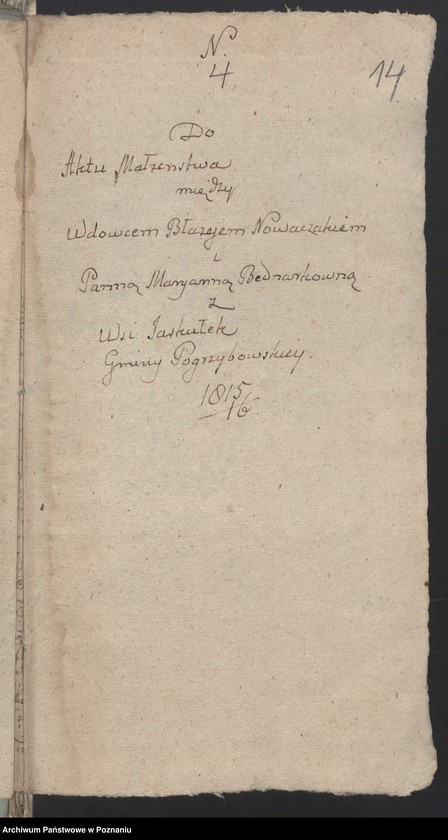 N.
4
14
Do
Aktu Małzenstwa
między
Wdowcem Błazejem Nowaczakiem
i
Panną Maryanną Bednarkowną
z
Wsi Jaskułek
Gminy Pogrzybowskiey.
1815
16
Archiwum Państwowe w Poznaniu